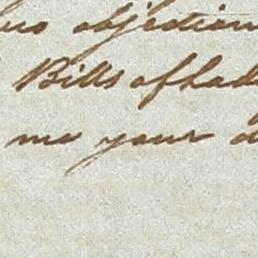 objection
Bills of Lad
me your d